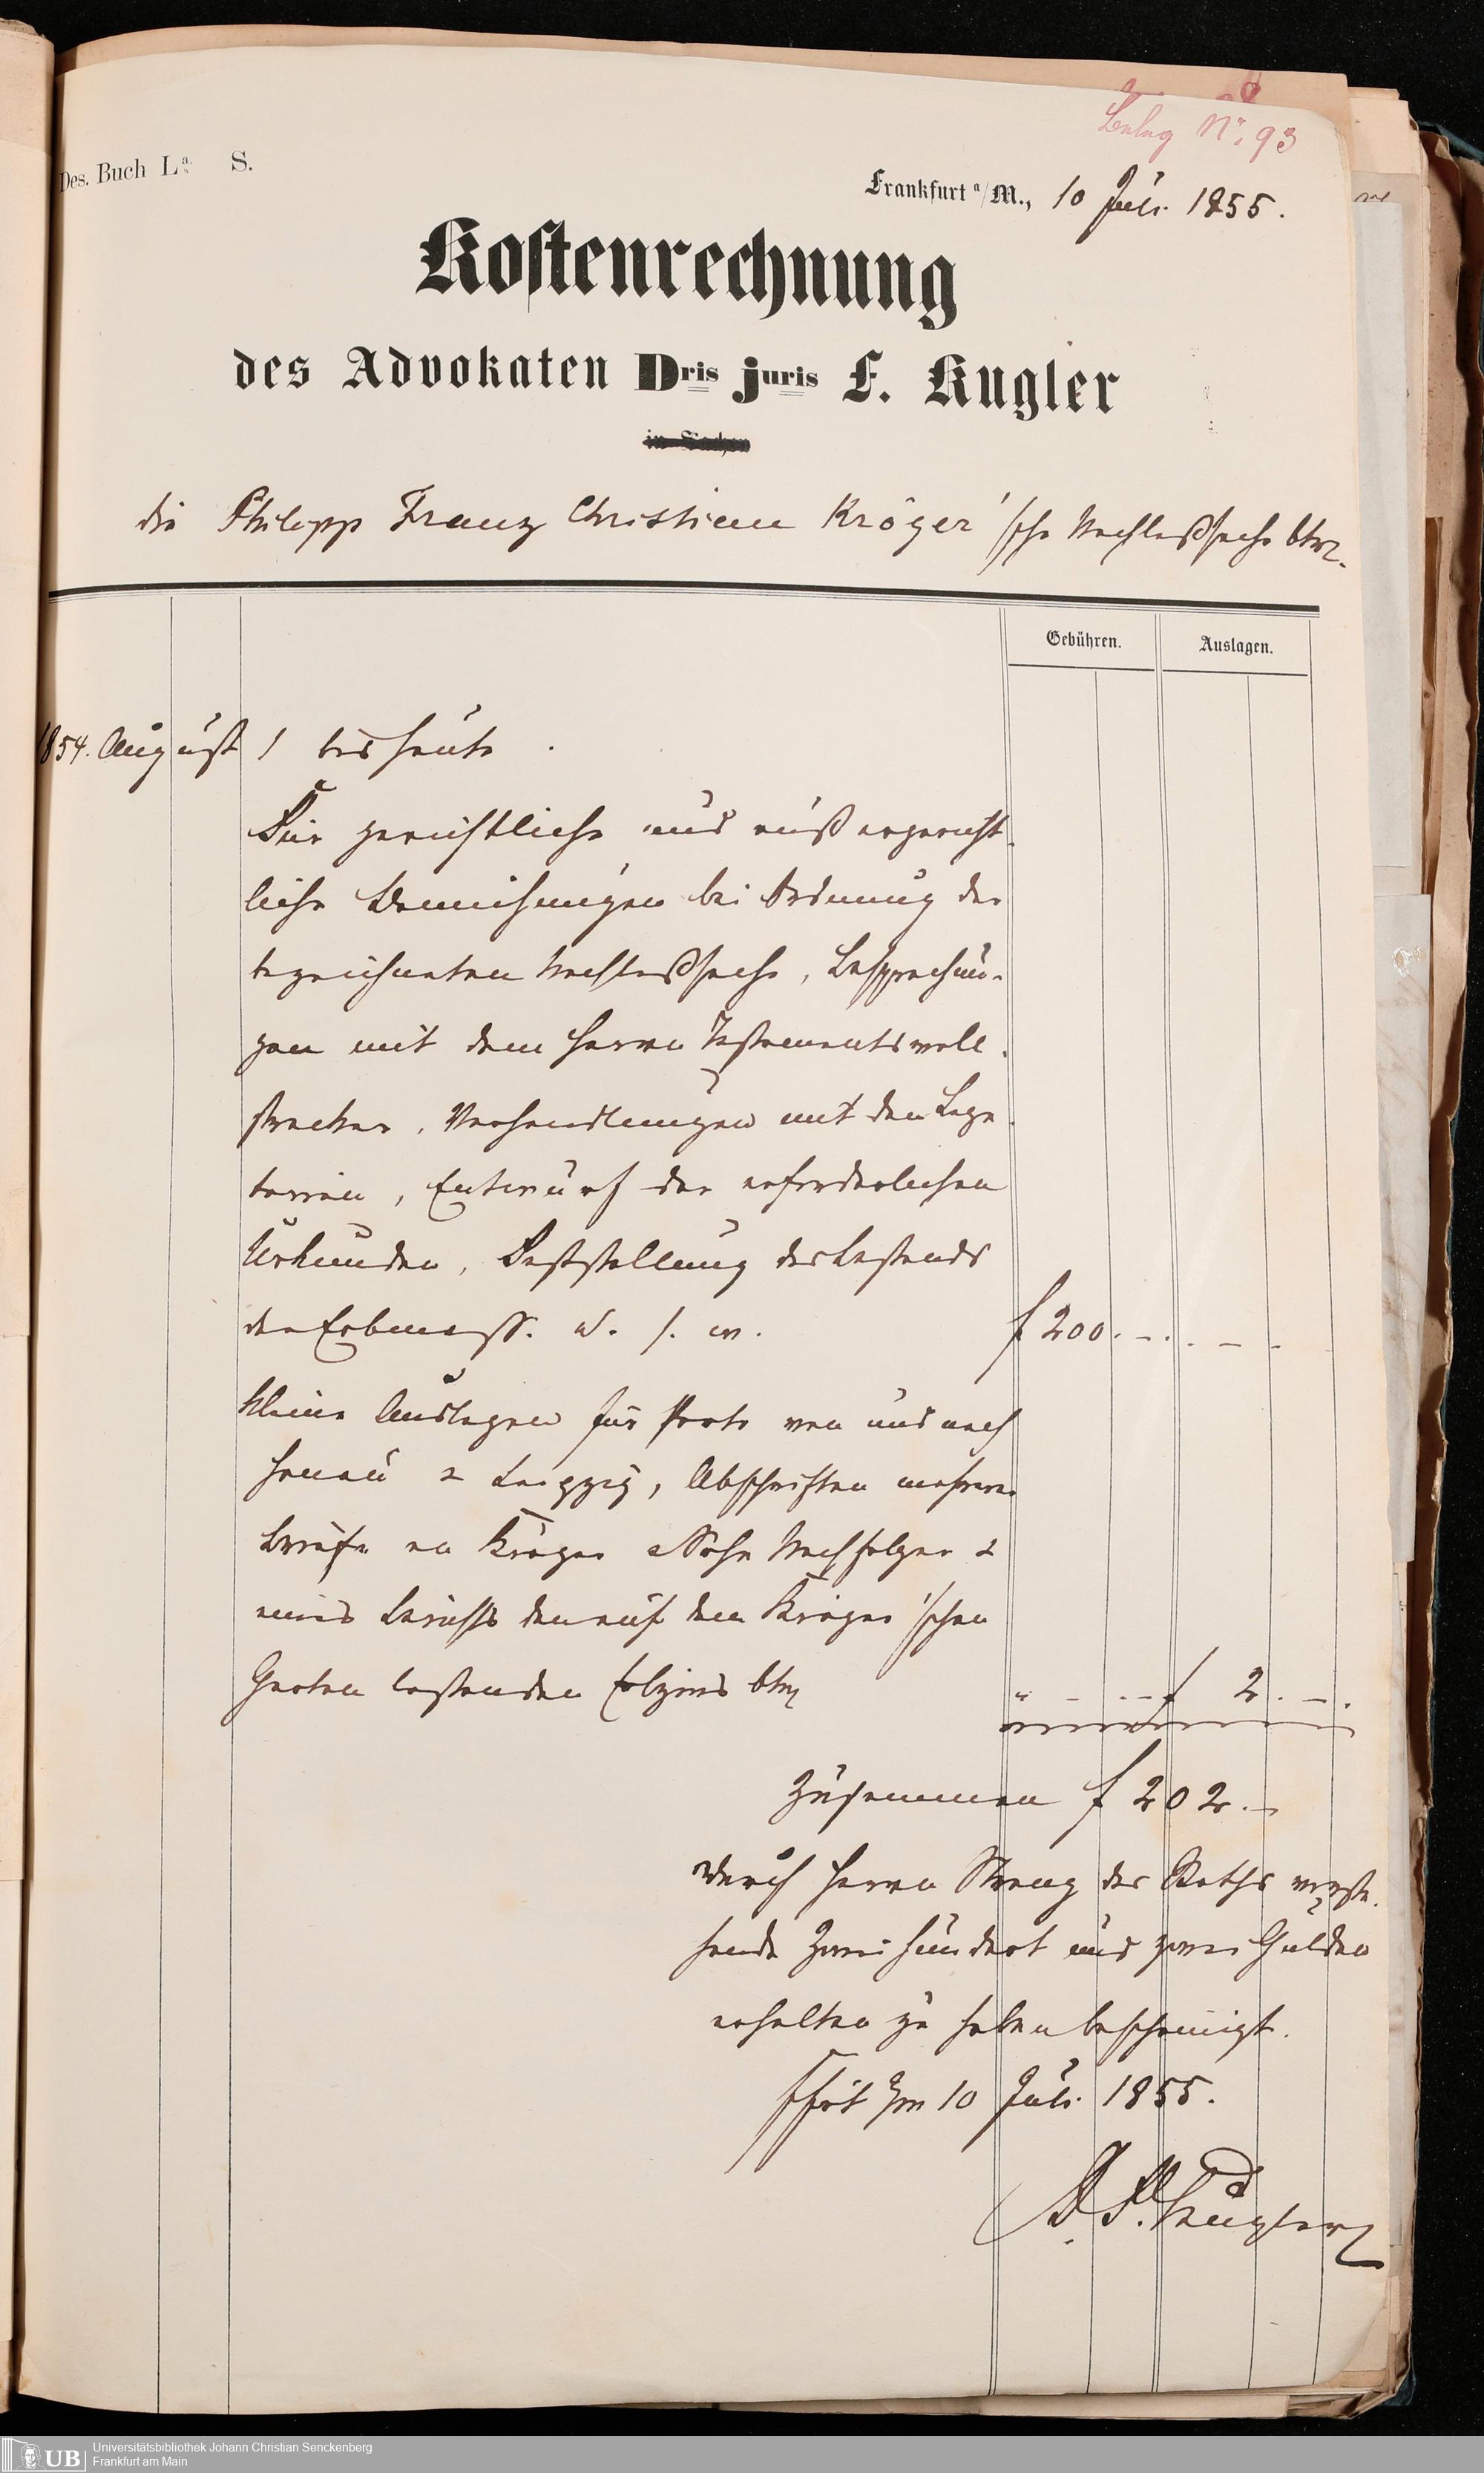 Beleg No. 93
Des. Buch La. S.
Frankfurt a/M., 10 Juli 1855.
Kostenrechnung
des Advokaten Dris juris F. Kugler
in Sachen
die Philipp Franz Christian Kröger'sche Nachlaßsache btr.
Gebühren. Auslagen.
1854. August 1 bis heute
Für gerichtliche und außergericht-
liche Bemühungen bei Ordnung der
bezeichneten Nachlaßsache, Besprechun-
gen mit dem Herrn Testamentsvoll-
strecker, Verhandlungen mit den Lega-
tarien, Entwurf der erforderlichen
Urkunden, Feststellung des Bestands
der Erbmasse. u. s. w. f 200. -
Kleine Auslagen für Porto von und nach
Hanau & Leipzig, Abschriften mehrerer
Briefe an Kröger Nachfolger &
eines Berichts den auf dem Kröger'schen
Garten lastenden btr
" - - f 2. -
Zusammen f 202. -
Durch Herrn des Raths vorste-
hende Zweihundert und zwei Gulden
erhalten zu haben bescheinigt.
Ffurt 10 Juli 1855.
Dr. F. Kugler
Universitätsbibliothek Johann Christian Senckenberg
Frankfurt am Main
UB